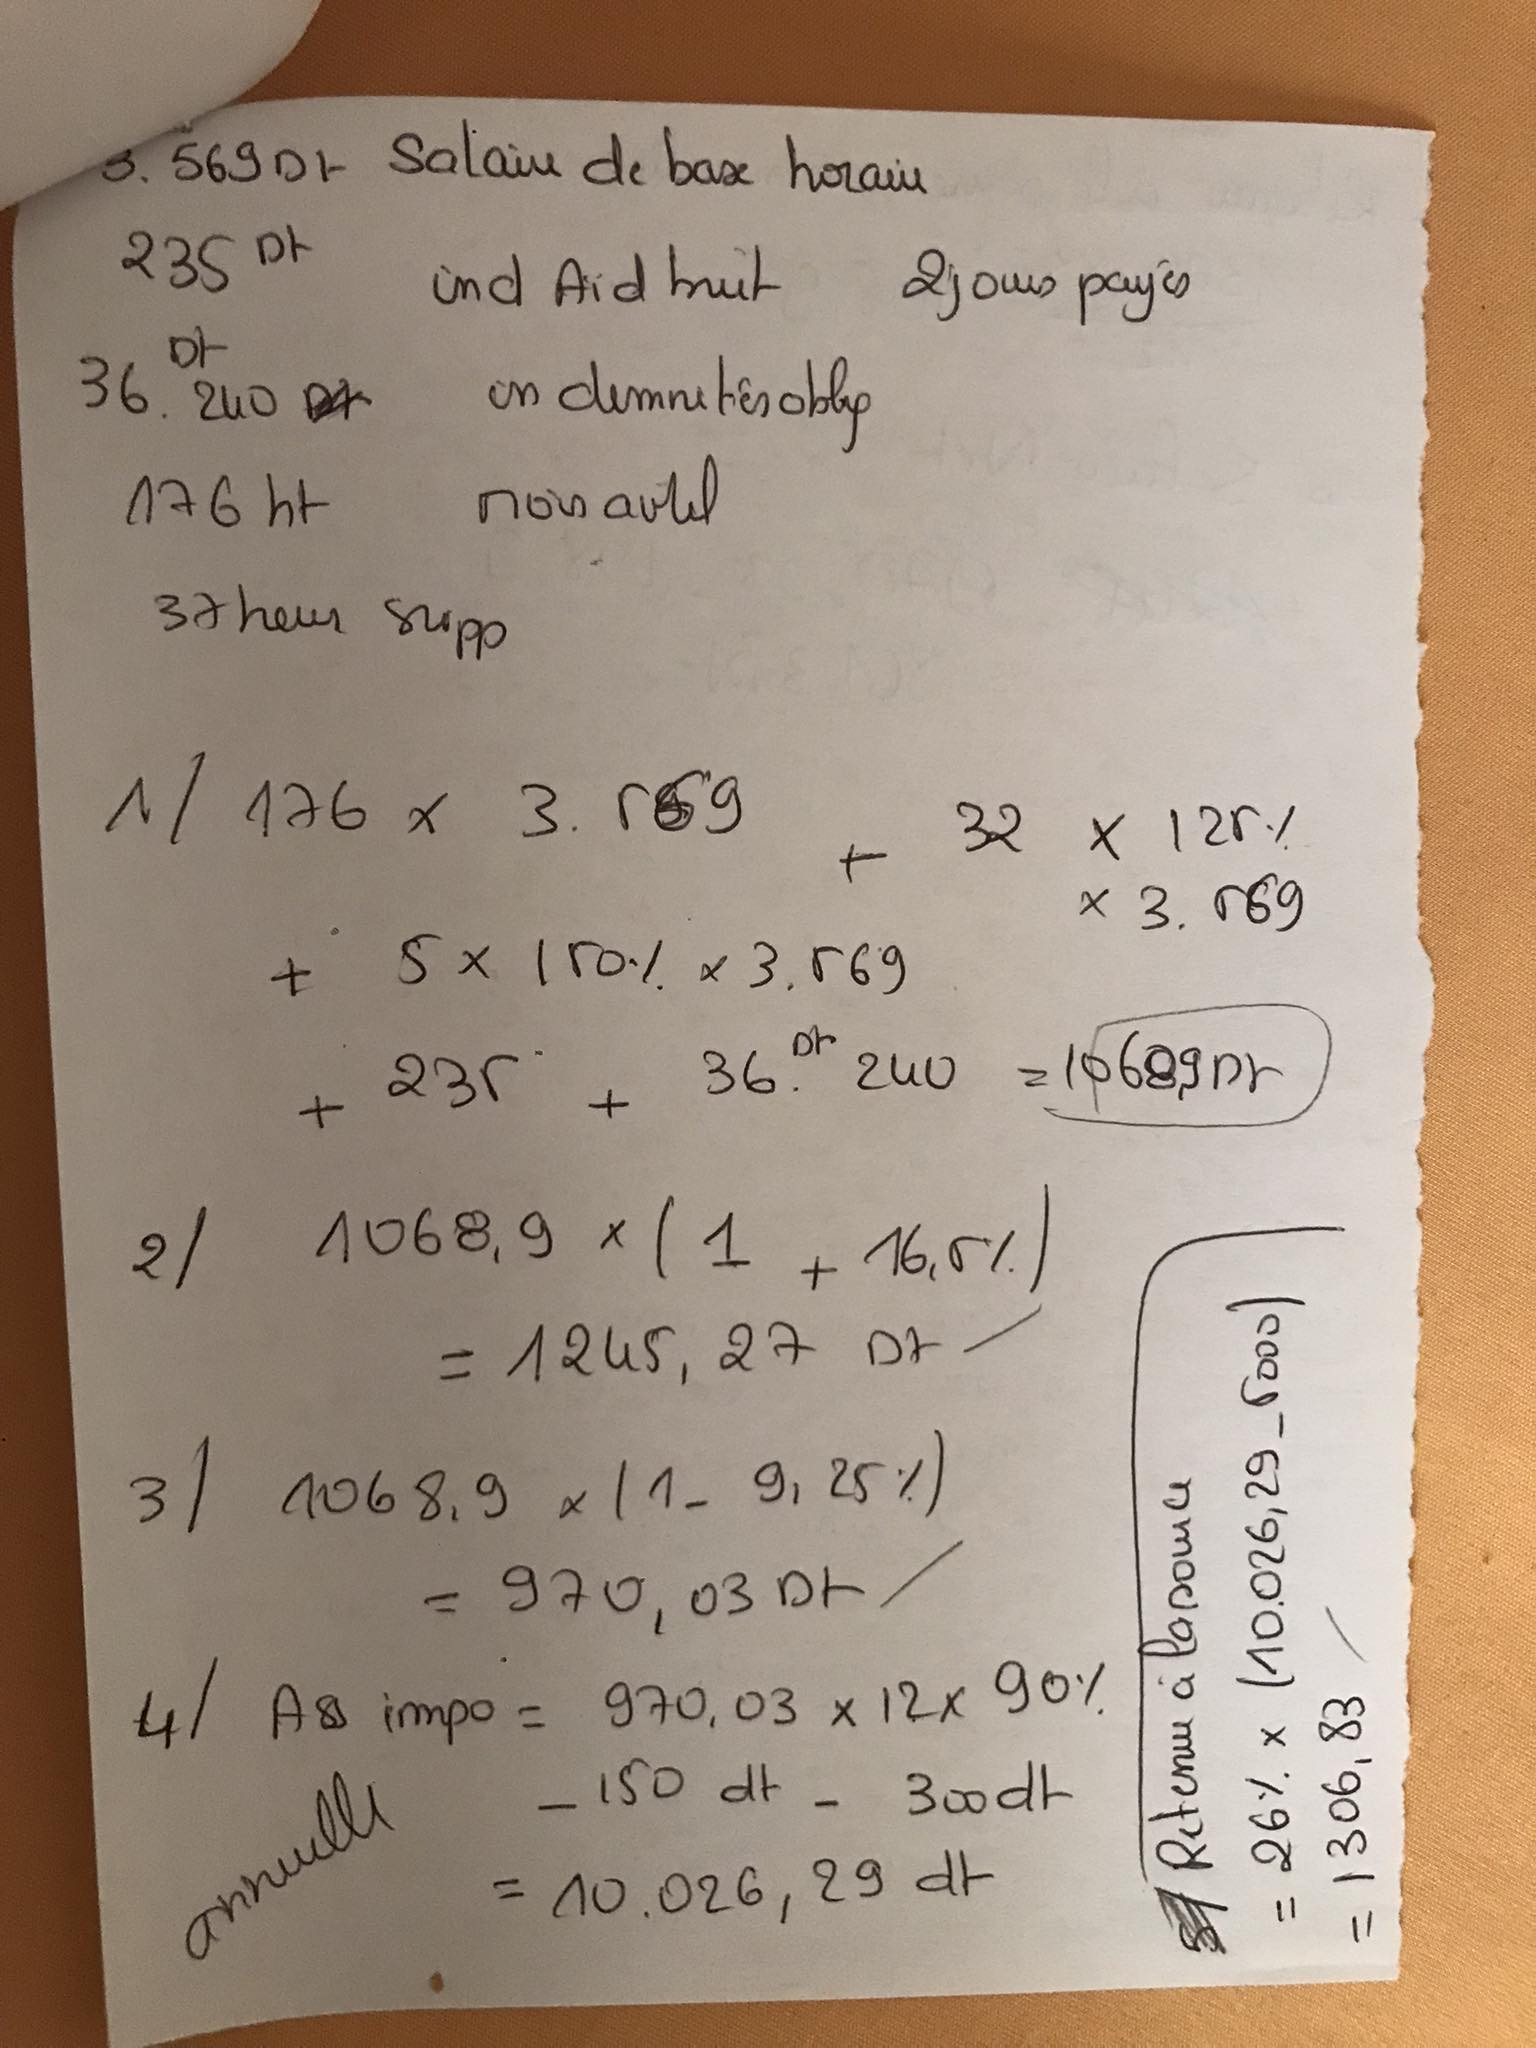 3.569Dt Salaire de base horaire
235 Dt ind Aid bruit 2jours payés
36. Dt 240 indemnités oblig
176 ht mois
37heur supp
1/ 176 x 3.569 + 32 x 125%
x 3.569
+ 5 x 150% x 3.569
+ 235 + 36. Dt 240 = 1068,9 Dt
2/ 1068,9 x (1 + 16,5%)
= 1245,27 Dt
3/ 1068,9 x (1 - 9,25%)
= 970,03 Dt
4/ impo = 970,03 x 12 x 90%
annuelle - 150 dt - 300 dt
= 10.026,29 dt
Retenue à la source
= 26% x (10.026,29 - 5000)
= 1306,83